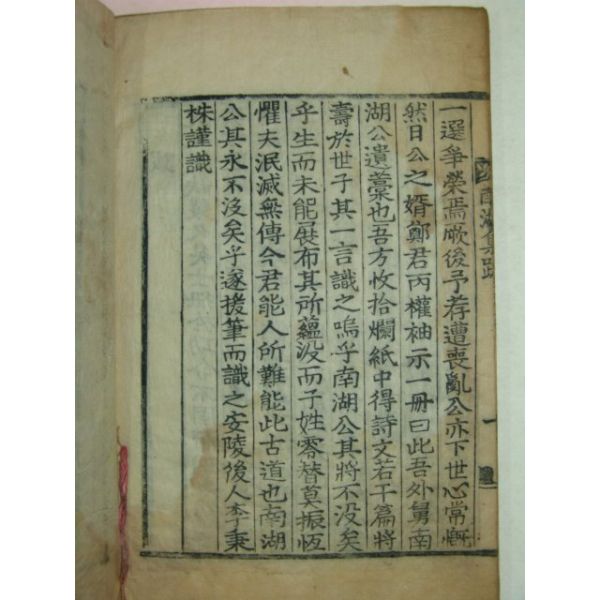 一選爭榮焉厥後予荐遭喪亂公亦下世心常慨
然日公之婿鄭君丙權袖示一冊曰此吾外舅南
湖公遺藁也吾方收拾爛紙中得詩文若干篇將
壽於世子其一言識之嗚乎南湖公其將不沒矣
乎生而未能展布其所蘊沒而子姓零替莫振恒
懼夫泯滅無傳今君能人所難能此古道也南湖
公其永不沒矣乎遂援筆而識之安陵後人李秉
株謹識
南湖集跋
一